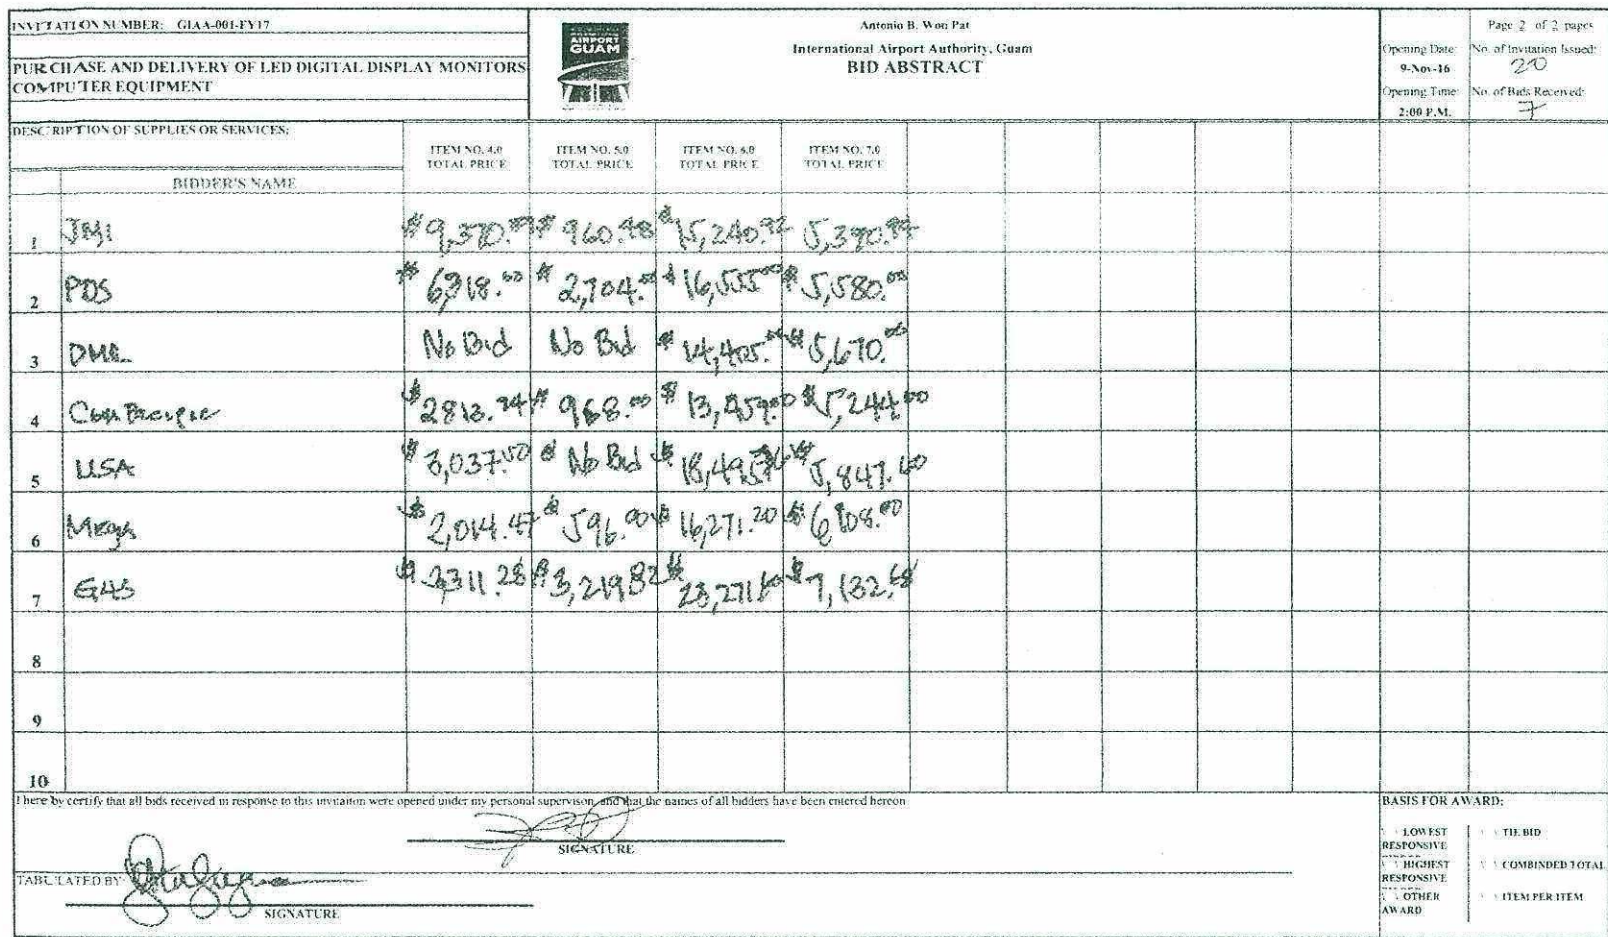 INVITATION NUMBER: GIAA-001-FY17
PURCHASE AND DELIVERY OF LED DIGITAL DISPLAY MONITORS
COMPUTER EQUIPMENT
AIRPORT
GUAM
Antonio B. Won Pat
International Airport Authority, Guam
BID ABSTRACT
Opening Date:
9-Nov-16
Opening Time:
2:00 P.M.
Page 2 of 2 pages
No. of Invitation Issued:
20
No. of Bids Received:
7
DESCRIPTION OF SUPPLIES OR SERVICES:
BIDDER'S NAME
ITEM NO. 4.0
TOTAL PRICE
ITEM NO. 5.0
TOTAL PRICE
ITEM NO. 6.0
TOTAL PRICE
ITEM NO. 7.0
TOTAL PRICE
1 JMI $ 960.48 $ 15,240.92
2 PDS $ 2,704.00 $ 16,555.00 $ 5,580.00
3 No Bid No Bid $ 5,670.00
4 $ 2813.94 $ 968.00 $ 5,244.00
5 USA $ 3,037.50 $ No Bid $ 5,847.60
6 Mega $ 2,014.47 $ 596.00 $ 16,271.20 $
7 $ 3,219.82 $ $ 7,132.68
8
9
10
I here by certify that all bids received in response to this invitaiton were opened under my personal supervison, and that the names of all bidders have been entered hereon
SIGNATURE
TABULATED BY:
SIGNATURE
BASIS FOR AWARD:
LOWEST
RESPONSIVE
HIGHEST
RESPONSIVE
OTHER
AWARD
TIE BID
COMBINDED TOTAL
ITEM PER ITEM